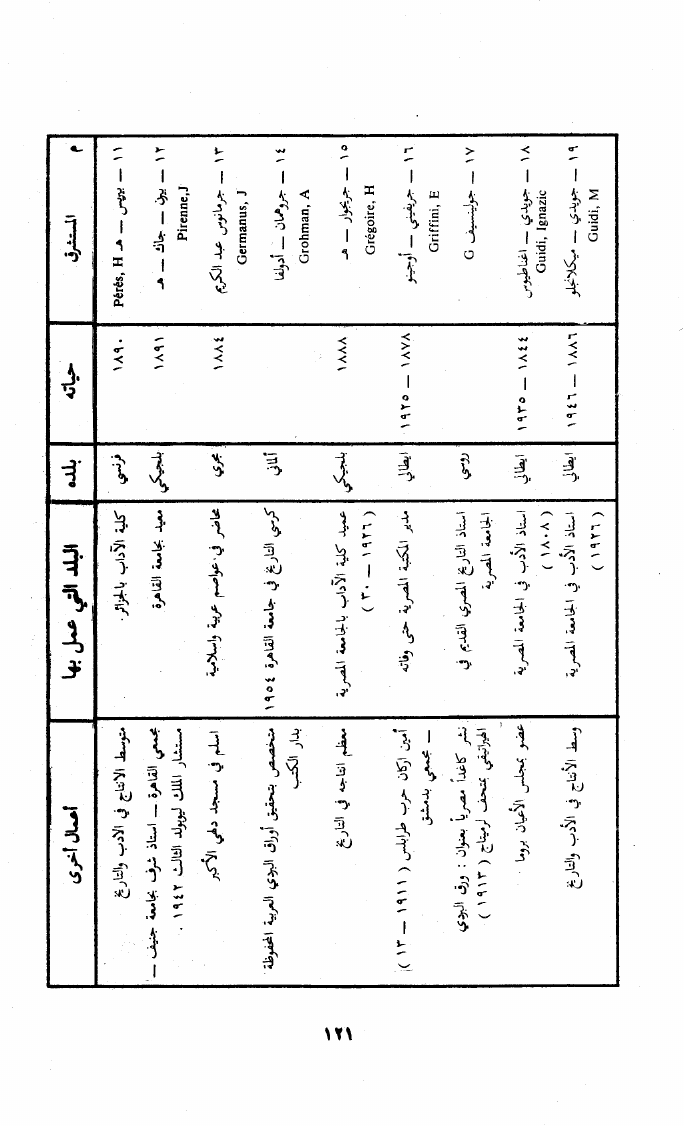 م المستشرق حياته بلده البلد التي عمل بها أعمال أخرى
١١ — بيريس — هـ ١٨٩٠ فرنسي كلية الآداب بالجزائر. متوسط الانتاج في الادب والتاريخ
Pérés, H
١٢ — بيرن — جاك — هـ ١٨٩١ بلجيكي معيد بجامعة القاهرة مجمعي القاهرة — استاذ شرف بجامعة جنيف —
Pirenne,J مستشار الملك ليوبولد الثالث ١٩٤٢ .
١٣ — جرمانوس عبد الكريم ١٨٨٤ مجري محاضر في عواصم عربية واسلامية اسلم في مسجد دلهي الأكبر
Germanus, J
١٤ — جروهمان — أدولفا ألماني كرسي التاريخ في جامعة القاهرة ١٩٥٤ متخصص بتحقيق أوراق البردي العربية المحفوظة
Grohman, A بدار الكتب
١٥ — جريجوار — هـ ١٨٨٨ بلجيكي عميد كلية الآداب بالجامعة المصرية معظم انتاجه في التاريخ
Grégoire, H ( ١٩٢٦ — ٣٠ )
١٦ — جريفيني — أوجينو ١٨٧٨ — ١٩٢٥ ايطالي مدير المكتبة المصرية حتى وفاته أمين اركان حرب طرابلس ( ١٩١١ — ١٣ )
Griffini, E — مجمعي بدمشق
١٧ — جولينسيف G روسي استاذ التاريخ المصري القديم في نشر كاغداً مصرياً بعنوان : ورق البردي
الجامعة المصرية الهيراطيقي بمتحف لرميتاج ( ١٩١٣ )
١٨ — جويدي — اغناطيوس ١٨٤٤ — ١٩٣٥ ايطالي استاذ الأدب في الجامعة المصرية عضو بمجلس الأعيان بروما
Guidi, Ignazic ( ١٨٠٨ )
١٩ — جويدي — ميكلانجلو ١٨٨٦ — ١٩٤٦ ايطالي استاذ الأدب في الجامعة المصرية وسط الأنتاج في الأدب والتاريخ
Guidi, M ( ١٩٢٦ )
١٢١